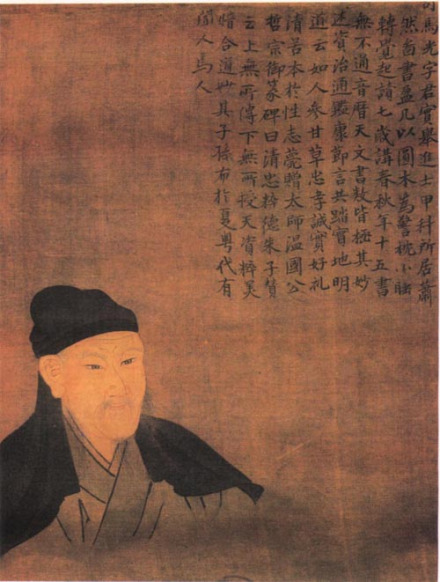 司馬光字君實舉進士甲科所居蕭
然啚書盈几以圓木為警枕小睡
轉覺起讀七歲講春秋年十五書
無不通音曆天文書數皆極其妙
述資治通鑑康節言其踏實地明
道云如人參甘草忠孝誠實好礼
清苦本於性志薨贈太師溫國公
哲宗御篆碑曰清忠粹德朱子贊
云上無所傳下無所授天資粹美
暗合道妙其子孫布於夏粵代有
人